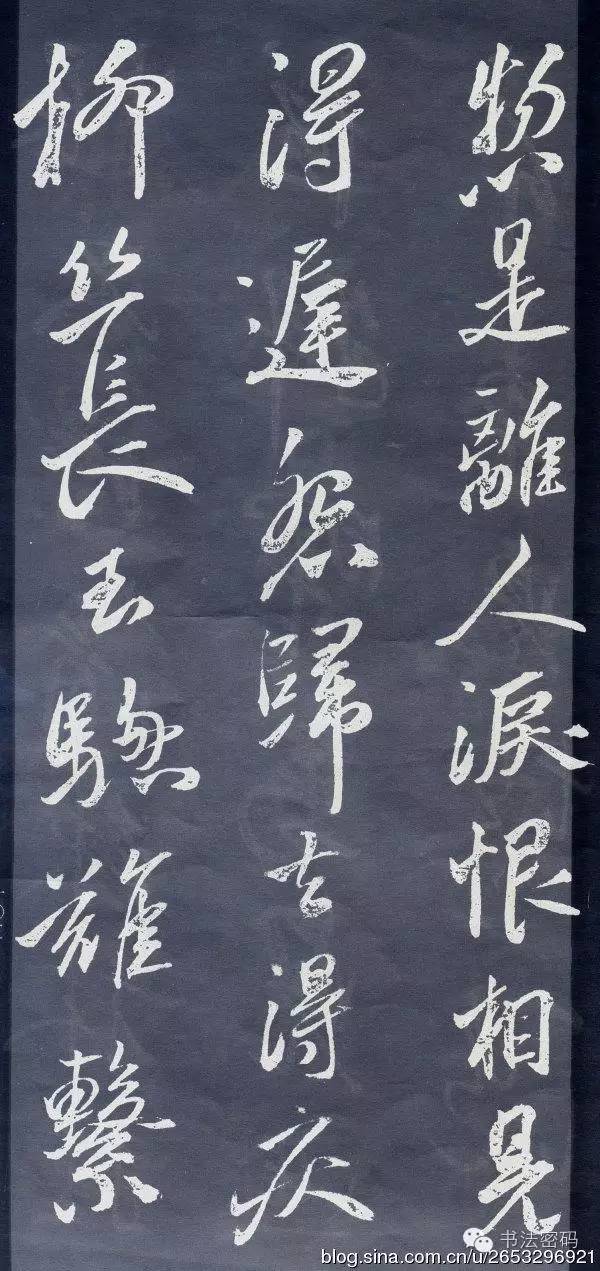 惣是離人淚恨相見
得遲怨歸去得疾
柳丝長玉驄難繫
书法密码
blog.sina.com.cn/u/2653296921